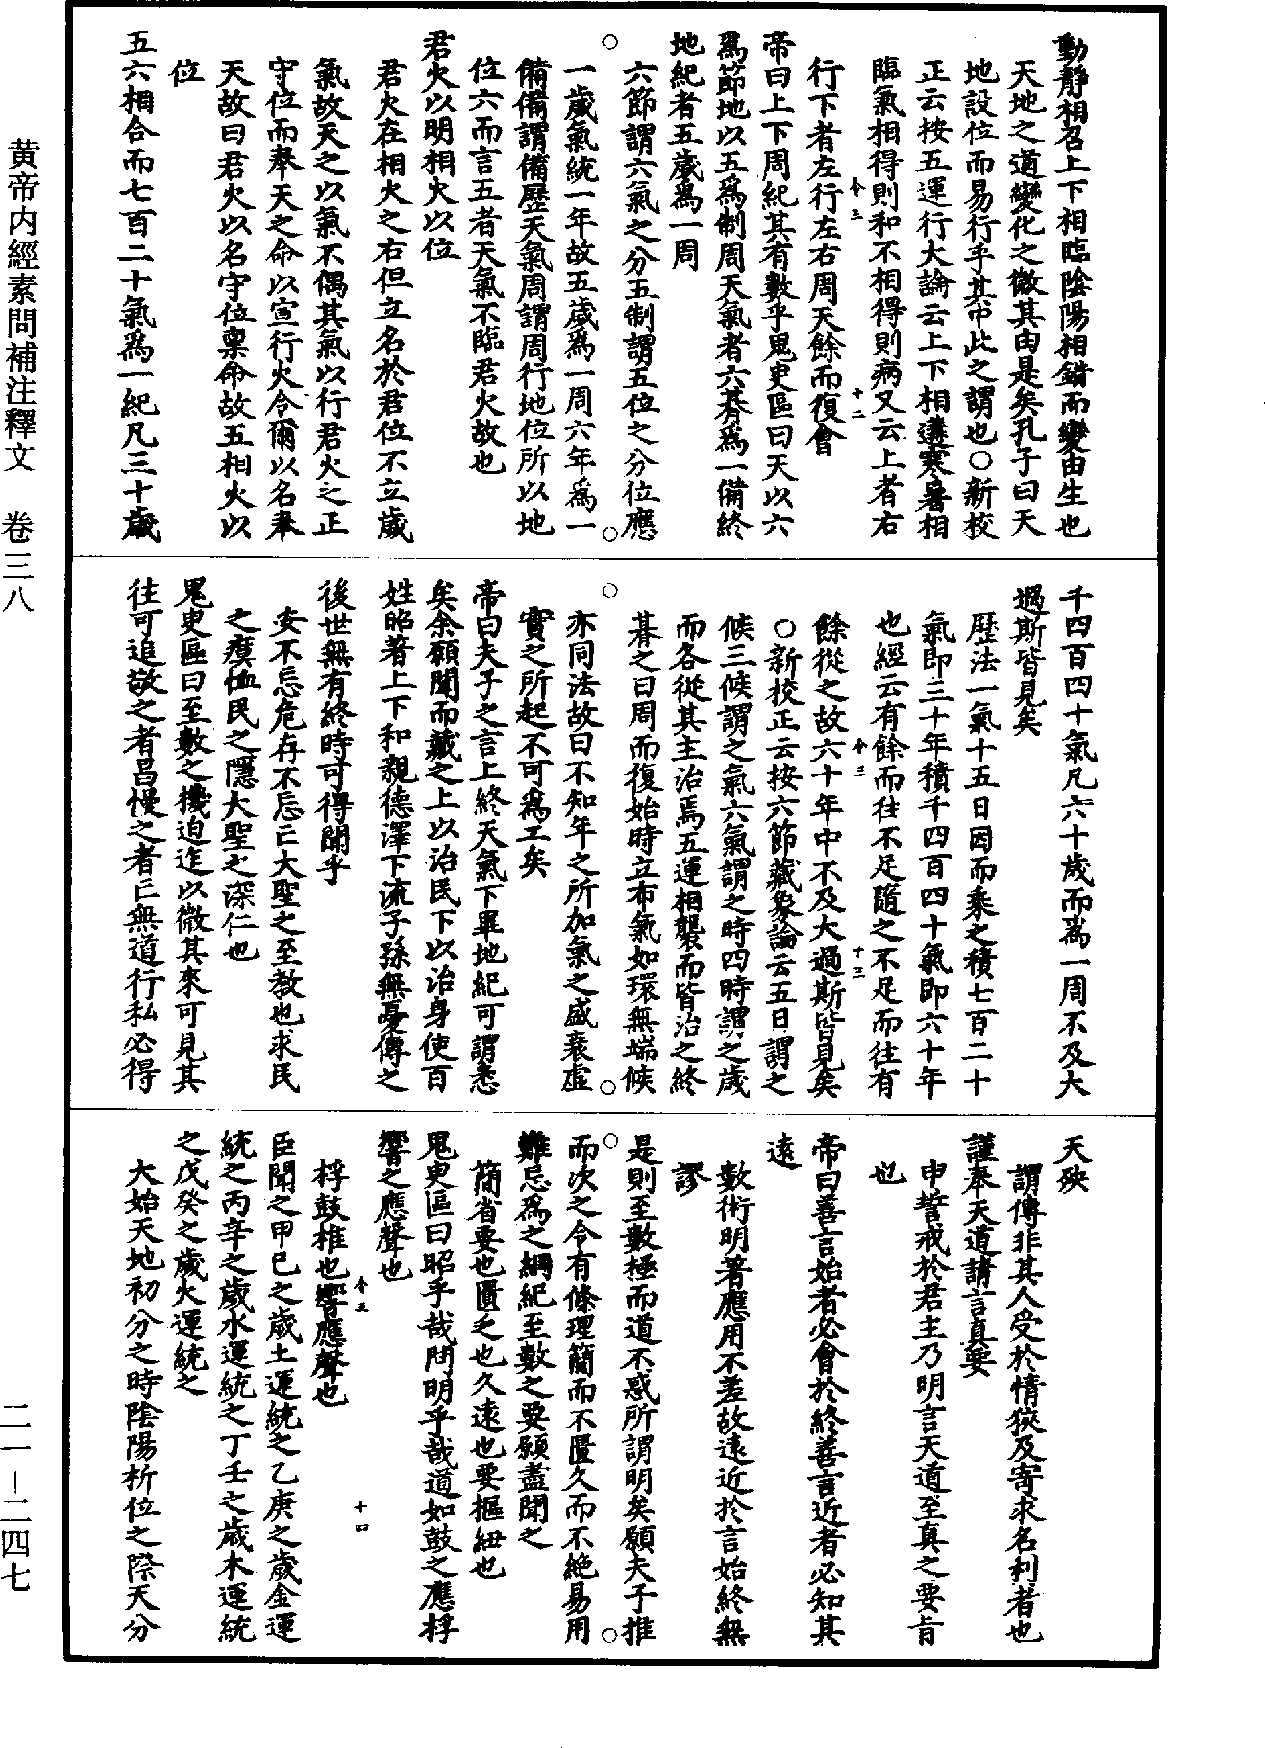 動靜相召上下相臨陰陽相錯而變由生也
天地之道變化之微其由是矣孔子曰天
地設位而易行乎其中此之謂也○新校
正云按五運行大論云上下相遘寒暑相
臨氣相得則和不相得則病又云上者右
行下者左行左右周天餘而復會
帝曰上下周紀其有數乎鬼臾區曰天以六
爲節地以五爲制周天氣者六朞爲一備終
地紀者五歲爲一周
六節謂六氣之分五制謂五位之分位應
一歲氣統一年故五歲爲一周六年爲一
備備謂備歷天氣周謂周行地位所以地
位六而言五者天氣不臨君火故也
君火以明相火以位
君火在相火之右但立名於君位不立歲
氣故天之以氣不偶其氣以行君火之正
守位而奉天之命以宣行火令爾以名奉
天故曰君火以名守位稟命故五相火以
位
五六相合而七百二十氣爲一紀凡三十歲
千四百四十氣凡六十歲而爲一周不及太
過斯皆見矣
歷法一氣十五日因而乘之積七百二十
氣即三十年積千四百四十氣即六十年
也經云有餘而往不足隨之不足而往有
餘從之故六十年中不及大過斯皆見矣
○新校正云按六節藏象論云五日謂之
候三候謂之氣六氣謂之時四時謂之歲
而各從其主治焉五運相襲而皆治之終
朞之日周而復始時立布氣如環無端候
亦同法故曰不知年之所加氣之盛衰虛
實之所起不可爲工矣
帝曰夫子之言上終天氣下畢地紀可謂悉
矣余願聞而藏之上以治民下以治身使百
姓昭著上下和親德澤下流子孫無憂傳之
後世無有終時可得聞乎
安不忘危存不忘亡大聖之至教也求民
之瘼恤民之隱大聖之深仁也
鬼臾區曰至數之機迫迮以微其來可見其
往可追敬之者昌慢之者亡無道行私必得
天殃
謂傳非其人受於情狹及寄求名利者也
謹奉天道請言真要
申誓戒於君主乃明言天道至真之要旨
也
帝曰善言始者必會於終善言近者必知其
遠
數術明著應用不差故遠近於言始終無
謬
是則至數極而道不惑所謂明矣願夫子推
而次之令有條理簡而不匱久而不絕易用
難忘爲之綱紀至數之要願盡聞之
簡省要也匱乏也久遠也要樞紐也
鬼臾區曰昭乎哉問明乎哉道如鼓之應桴
響之應聲也
桴鼓椎也響應聲也
臣聞之甲己之歲土運統之乙庚之歲金運
統之丙辛之歲水運統之丁壬之歲木運統
之戊癸之歲火運統之
大始天地初分之時陰陽析位之際天分
黄帝内經素問補注釋文 卷三八
二一－二四七